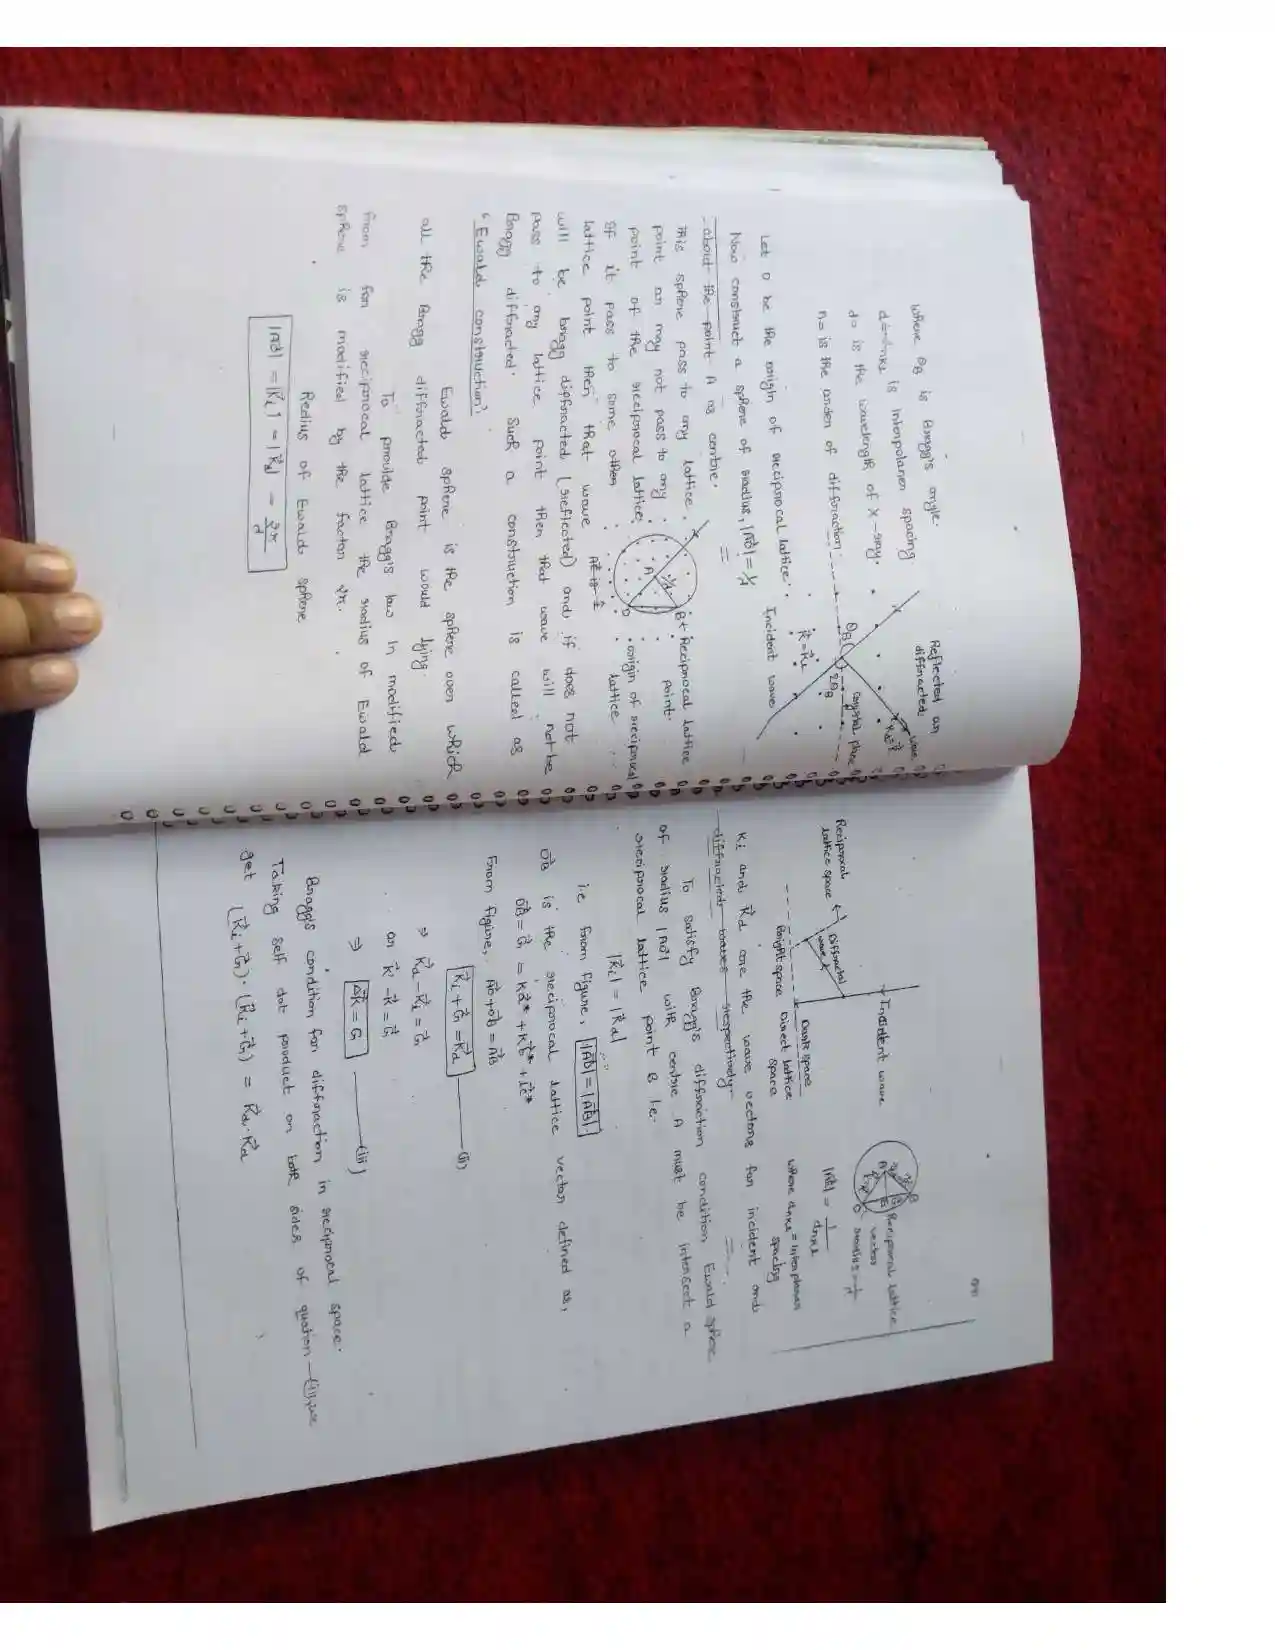 where θB is Bragg's angle.
d = dhkl is interplaner spacing
d = is the wavelength of X-ray.
n = is the order of diffraction.
Reflected or
diffracted
wave
θB
2θB
crystal plane
K = Ki
Incident wave
Let O be the origin of reciprocal lattice.
Now construct a sphere of radius, |AO| = 1/λ
about the point A as centre.
This sphere pass to any lattice
point or may not pass to any
point of the reciprocal lattice.
If it pass to some other
lattice point then that wave
will be bragg diffracted (reflected) and if does not
pass to any lattice point then that wave will not be
Bragg diffracted. Such a construction is called as
"Ewald construction".
A
B
O
Reciprocal lattice
point.
origin of reciprocal
lattice
Ewald sphere is the sphere over which
all the Bragg diffracted point would lying.
To provide Bragg's law in modified
from for reciprocal lattice the radius of Ewald
sphere is modified by the factor 2π.
Redius of Ewald sphere
|AO| = |Ki| = |Kd| = 2π/λ
Reciprocal
lattice space
Diffracted
wave
Incident wave
Bright space
Dark space
Direct lattice
space
A
B
O
Reciprocal lattice
vector
radius = 1/λ
|OB| = 1/dhkl
where dhkl = interplanar
spacing
Ki and Kd are the wave vectors for incident and
diffracted waves respectively.
To satisfy Bragg's diffraction condition Ewald sphere
of radius |AO| with centre A must be intersect a
reciprocal lattice point B i.e.
|Ki| = |Kd|
i.e from figure, |AO| = |AB|
OB is the reciprocal lattice vector defined as,
OB = G = ha* + kb* + lc*
From figure, AO + OB = AB
Ki + G = Kd —(ii)
⇒ Kd - Ki = G
or K' - K = G
⇒ ΔK = G —(iii)
Bragg's condition for diffraction in reciprocal space.
Taking self dot product on both sides of quation—(ii), we
get (Ki + G) · (Ki + G) = Kd · Kd